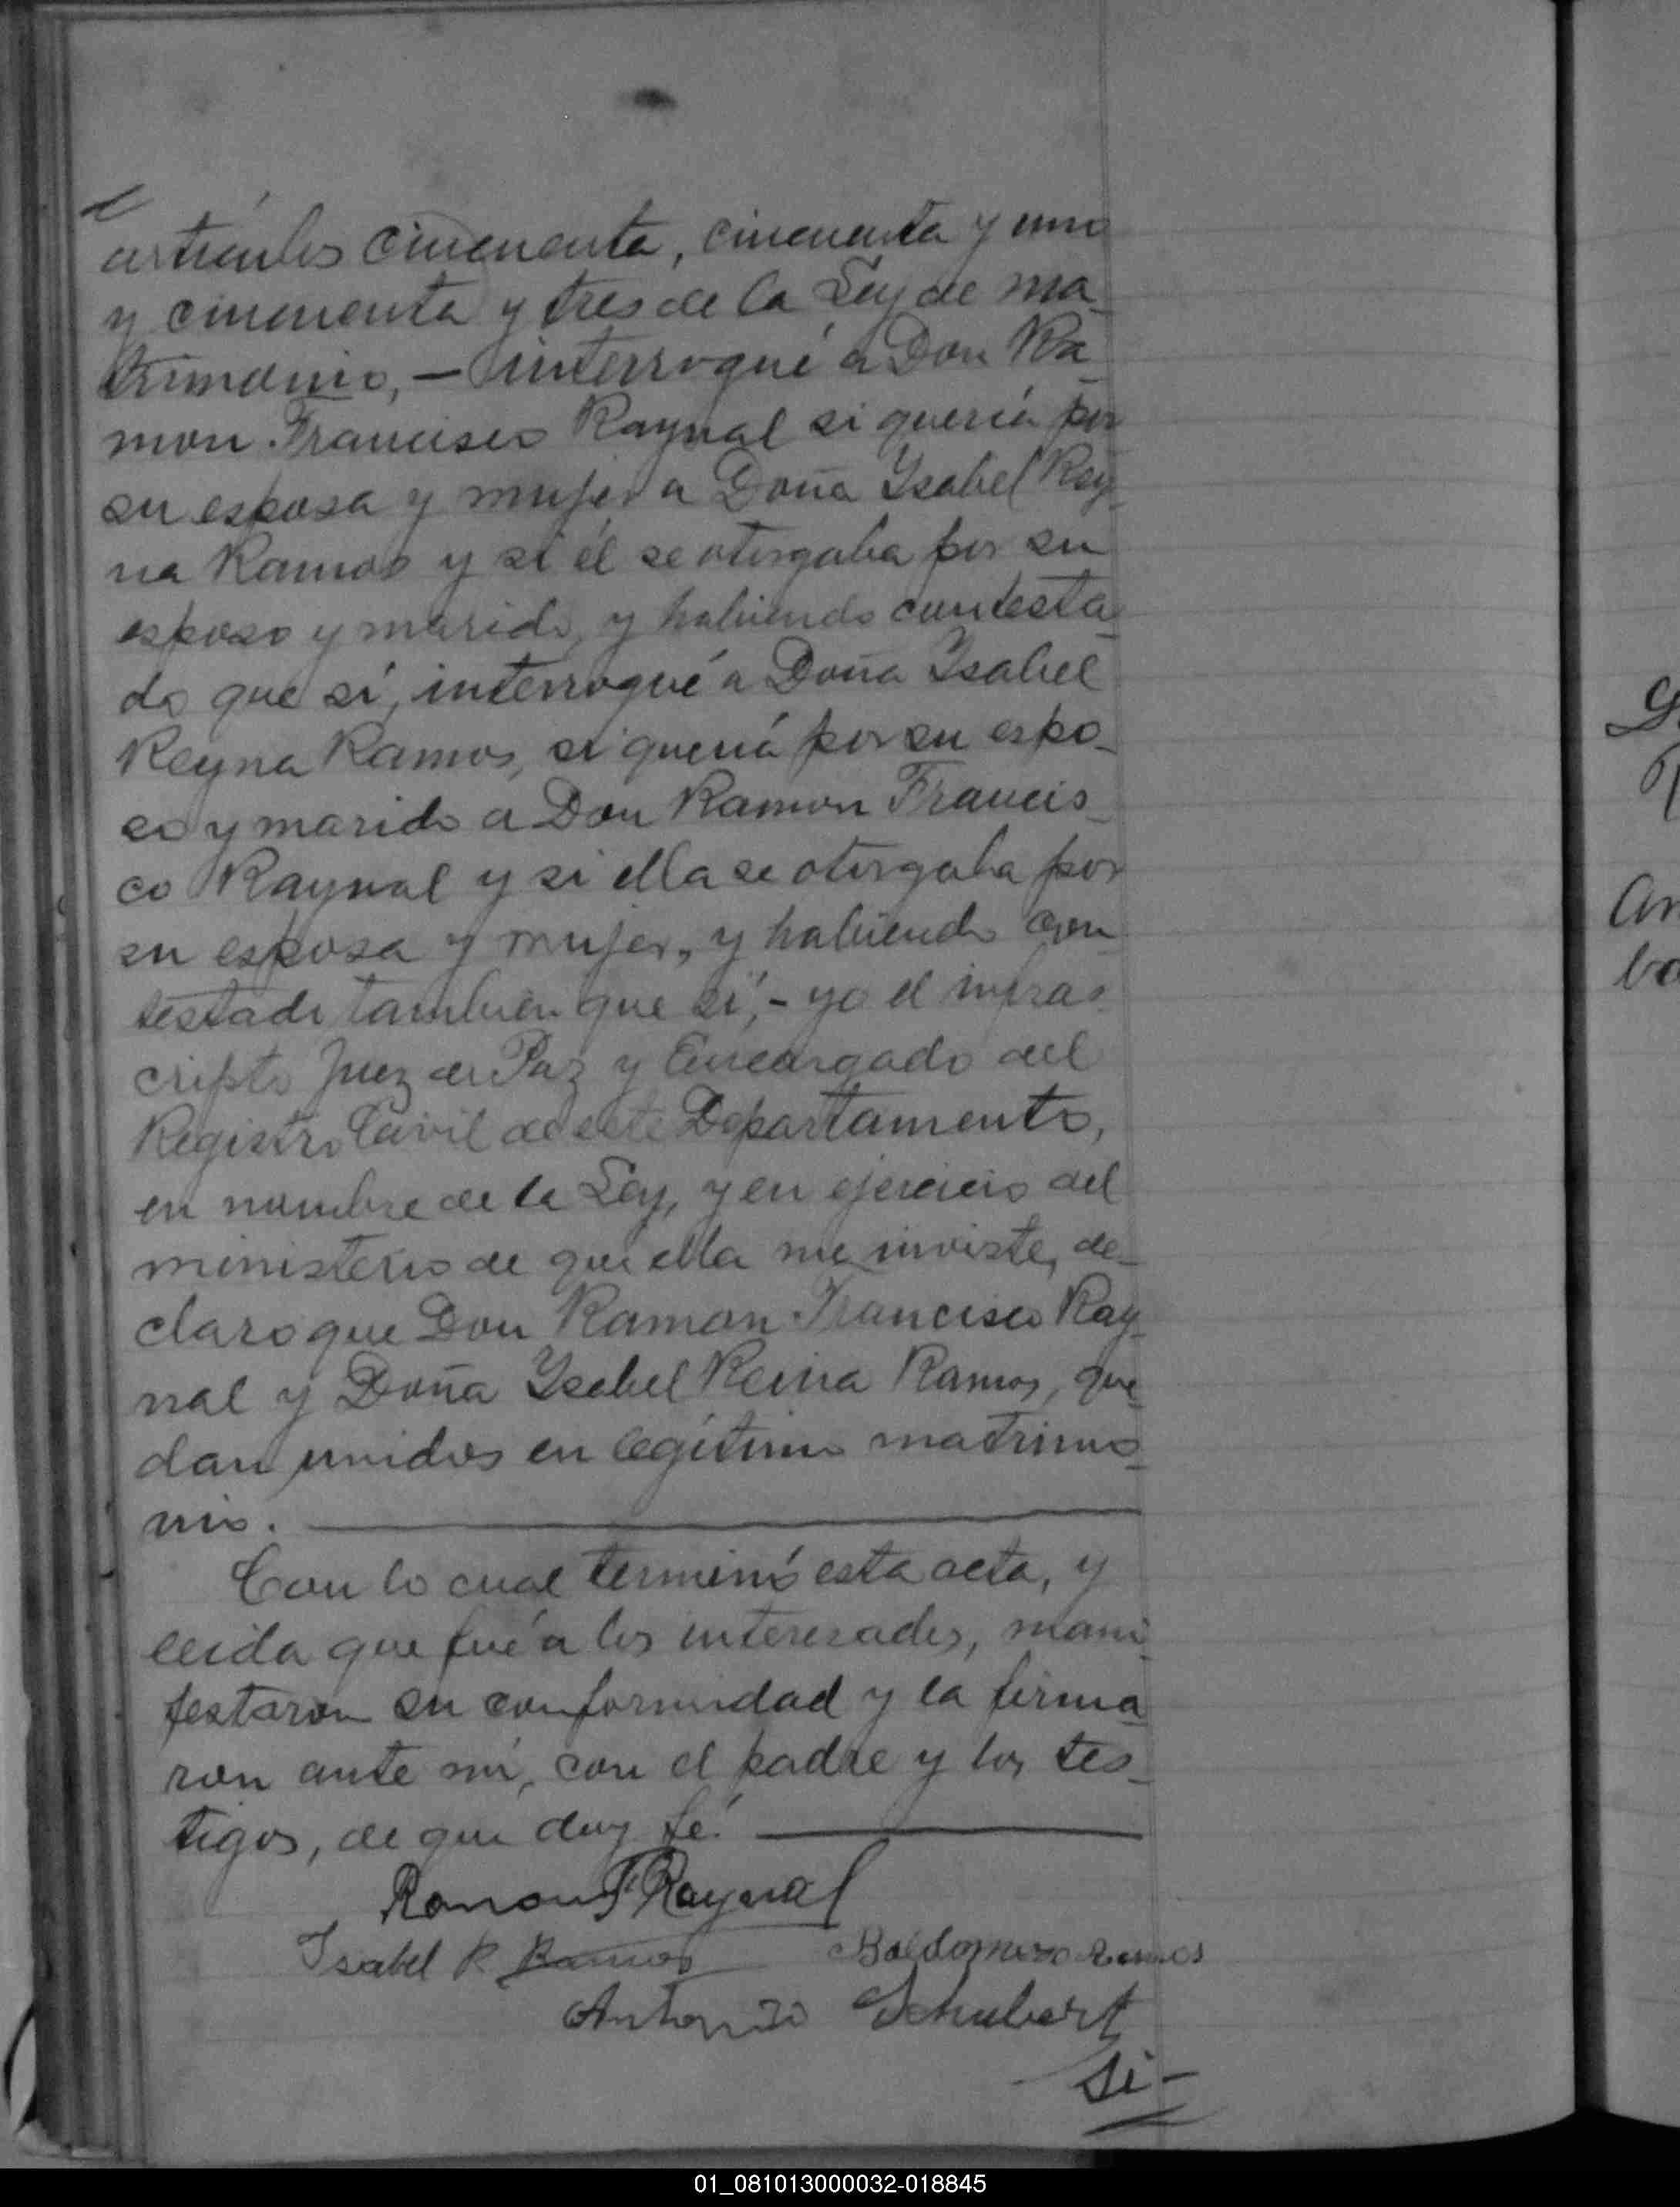 artículos cincuenta, cincuenta y uno
y cincuenta y tres de la Ley de ma_
trimonio, — interrogué a Don Ra_
mon Francisco Raynal si quería por
su esposa y mujer a Doña Ysabel Rey_
na Ramos y si él se otorgaba por su
esposo y marido, y habiendo contesta_
do que sí, interrogué a Doña Ysabel
Reyna Ramos, si quería por su espo_
so y marido a Don Ramon Francis_
co Raynal y si ella se otorgaba por
su esposa y mujer, y habiendo con_
testado tambien que sí, - yo el infras_
cripto Juez de Paz y Encargado del
Registro Civil de este Departamento,
en nombre de la Ley, y en ejercicio del
ministerio de que ella me inviste, de_
claro que Don Ramon Francisco Ray_
nal y Doña Ysabel Reina Ramos, que_
dan unidos en legítimo matrimo_
nio.
Con lo cual terminó esta acta, y
leida que fué a los interesados, mani_
festaron su conformidad y la firma_
ron ante mí, con el padre y los tes_
tigos, de que doy fé.
Ramon F Raynal
Isabel R Ramos Baldomero Ramos
Antonio Schubert
Si -
an
bo
01_081013000032-018845